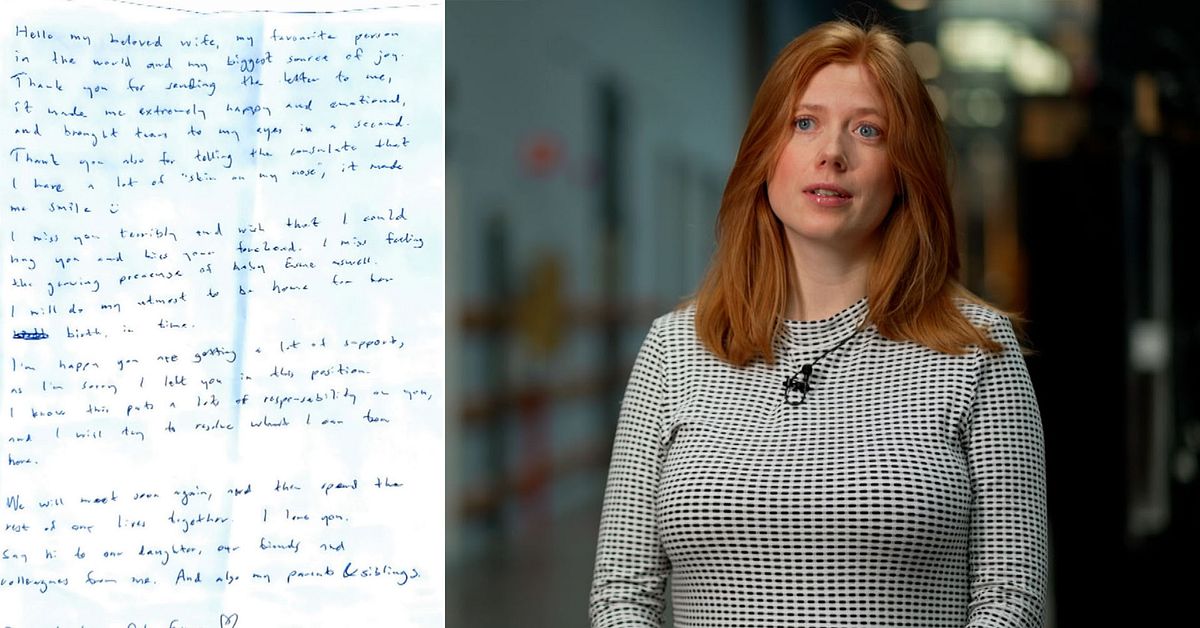 Hello my beloved wife, my favourite person
in the world and my biggest source of joy.
Thank you for sending the letter to me,
it made me extremely happy and emotional,
and brought tears to my eyes in a second.
Thank you also for telling the consulate that
I have a lot of "skin on my nose", it made
me smile :)
I miss you terribly and wish that I could
hug you and kiss your forehead. I miss feeling
the growing presence of baby aswell.
I will do my utmost to be home for her
birth, in time.
I'm happy you are getting a lot of support,
as I'm sorry I left you in this position.
I know this puts a lots of responsability on you,
and I will try to resolve what I can from
here.
We will meet soon again, and then spend the
rest of our lives together. I love you.
Say hi to our daughter, our friends and
colleagues from me. And also my parents & siblings.